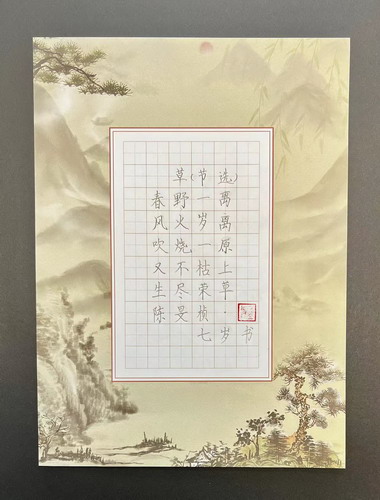 草(节选)
离离原上草
一岁一枯荣
野火烧不尽
春风吹又生
陈旻桢·
七岁书